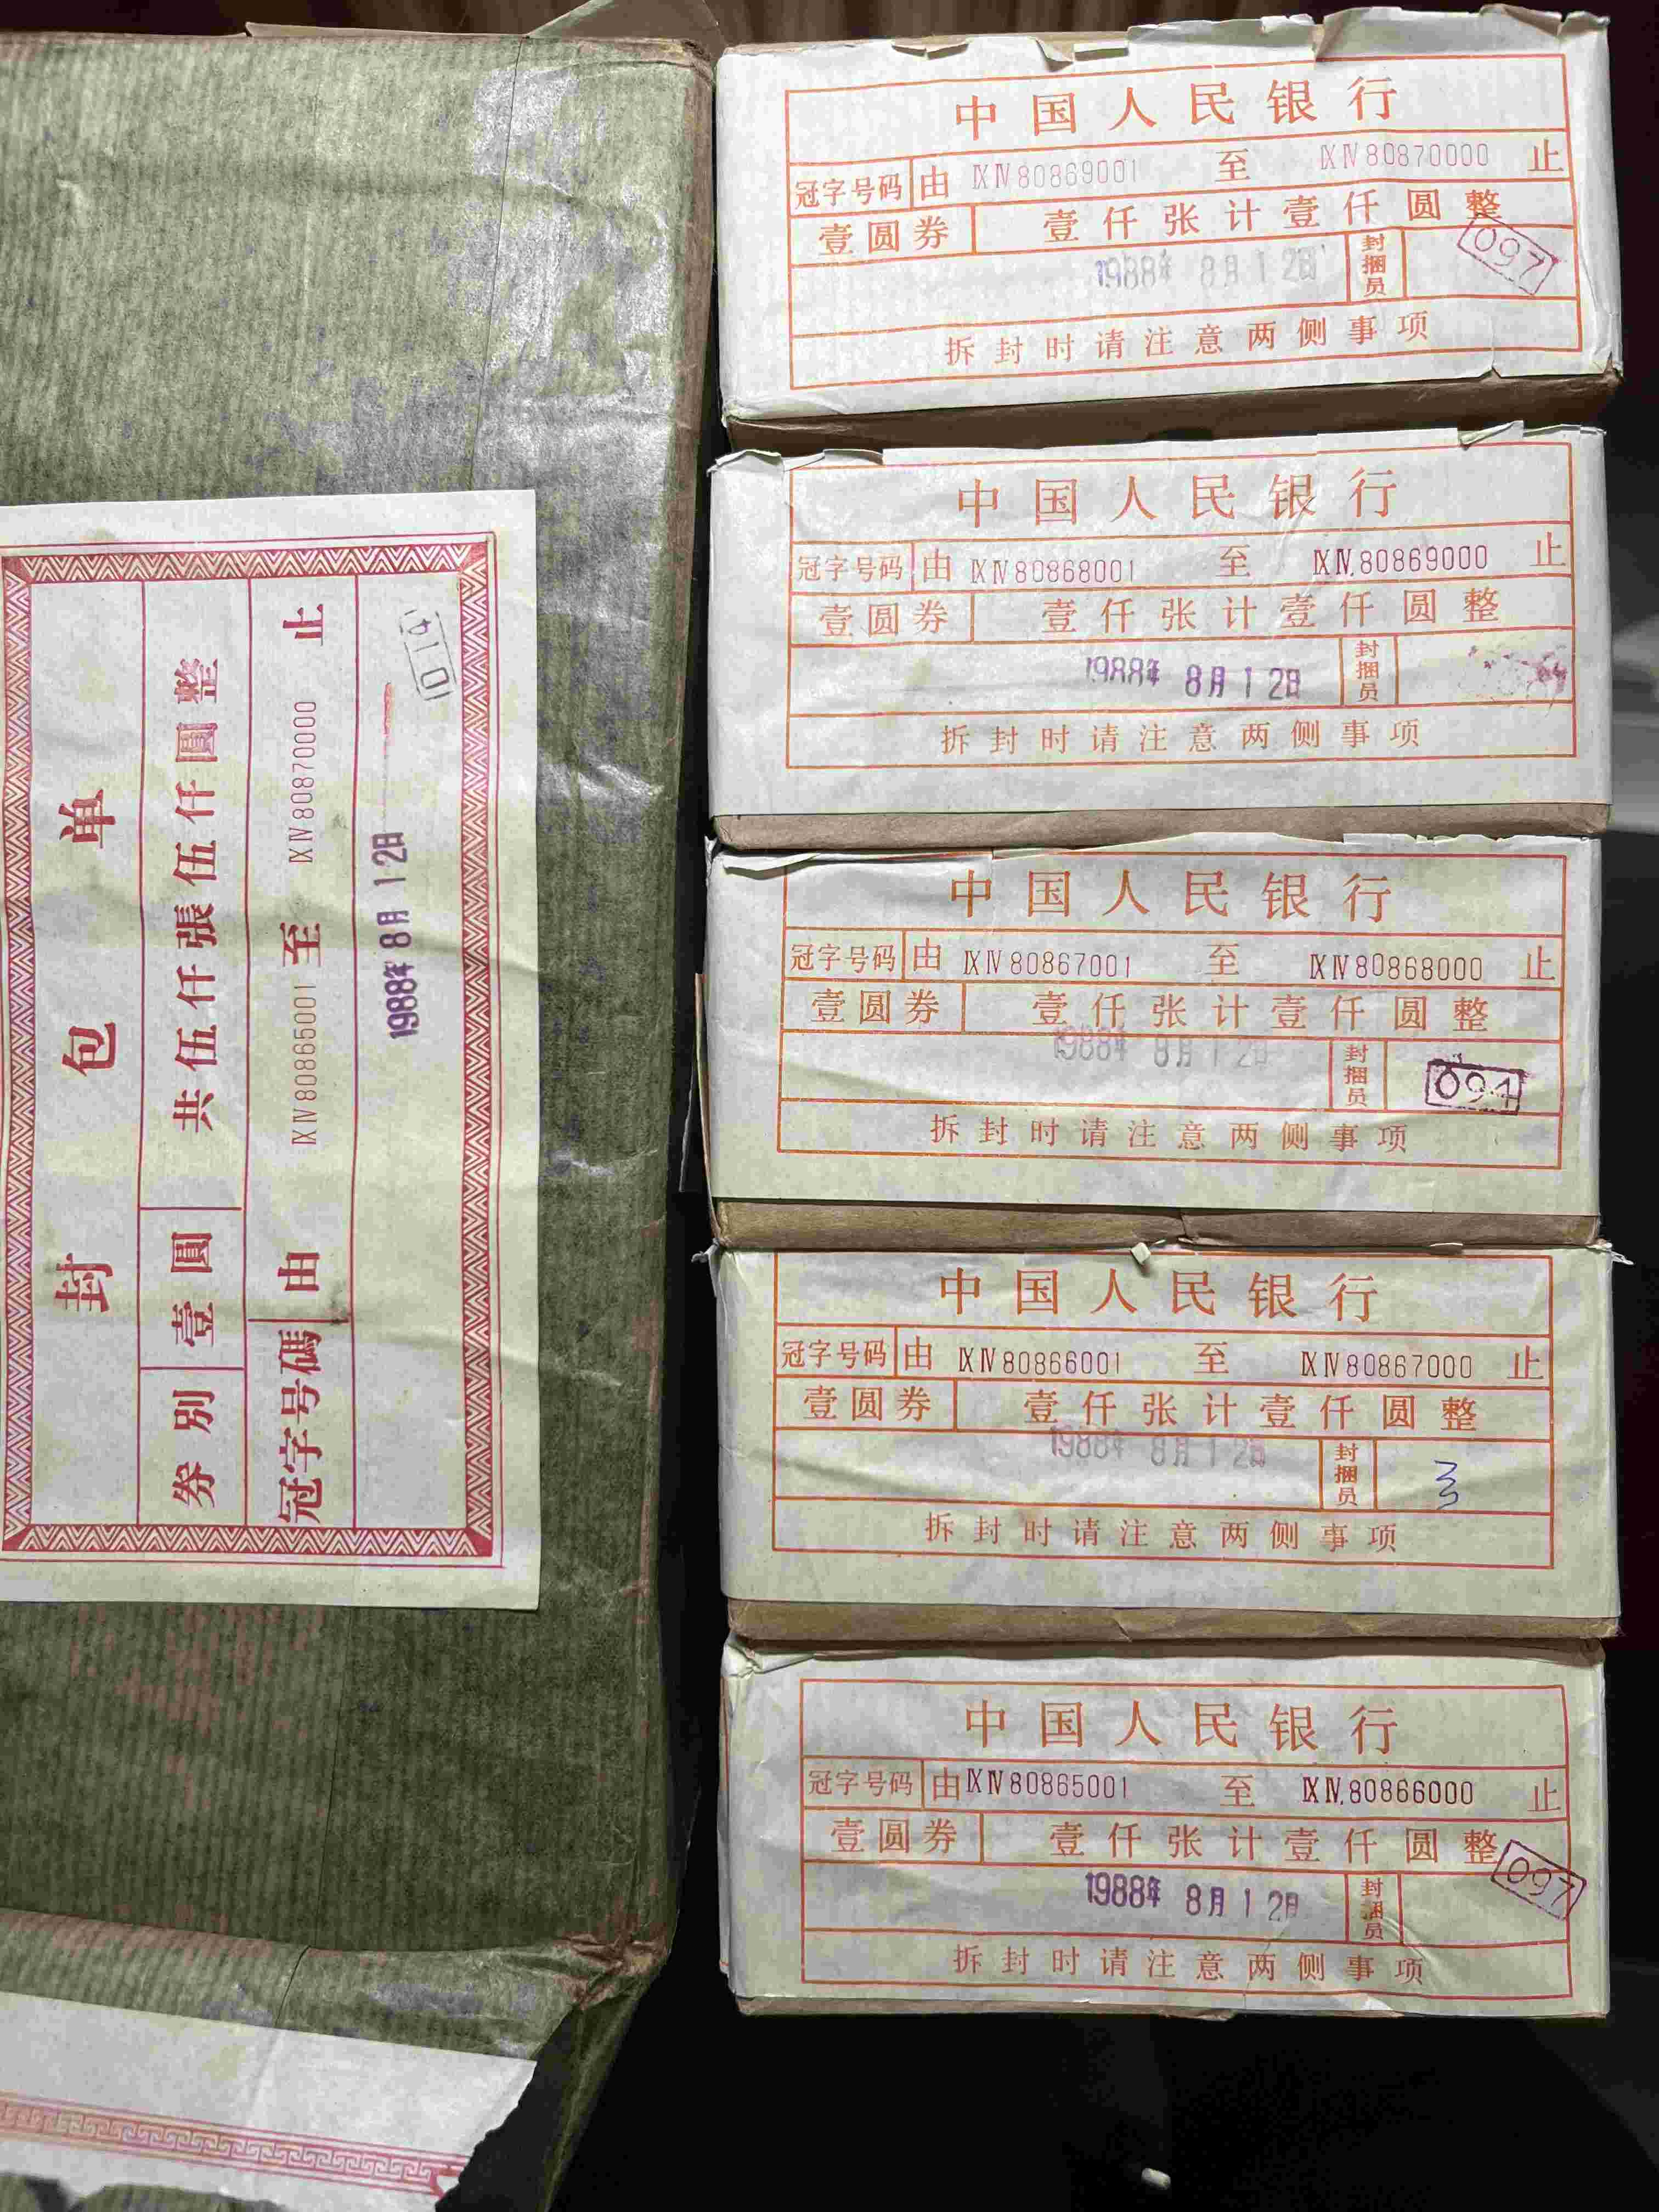 封包单
券別 壹圓 共伍仟張伍仟圓整
冠字号碼 由 ⅨⅣ80865001 至 ⅨⅣ80870000 止
1988年8月12日
1014
中国人民银行
冠字号码 由 ⅨⅣ80869001 至 ⅨⅣ80870000 止
壹圆券 壹仟张计壹仟圆整
1988年 8月12日 封捆员 097
拆封时请注意两侧事项
中国人民银行
冠字号码 由 ⅨⅣ80868001 至 ⅨⅣ.80869000 止
壹圆券 壹仟张计壹仟圆整
1988年 8月12日 封捆员
拆封时请注意两侧事项
中国人民银行
冠字号码 由 ⅨⅣ80867001 至 ⅨⅣ80868000 止
壹圆券 壹仟张计壹仟圆整
1988年 8月12日 封捆员 094
拆封时请注意两侧事项
中国人民银行
冠字号码 由 ⅨⅣ80866001 至 ⅨⅣ80867000 止
壹圆券 壹仟张计壹仟圆整
1988年 8月12日 封捆员
拆封时请注意两侧事项
中国人民银行
冠字号码 由 ⅨⅣ80865001 至 ⅨⅣ.80866000 止
壹圆券 壹仟张计壹仟圆整
1988年 8月12日 封捆员 097
拆封时请注意两侧事项